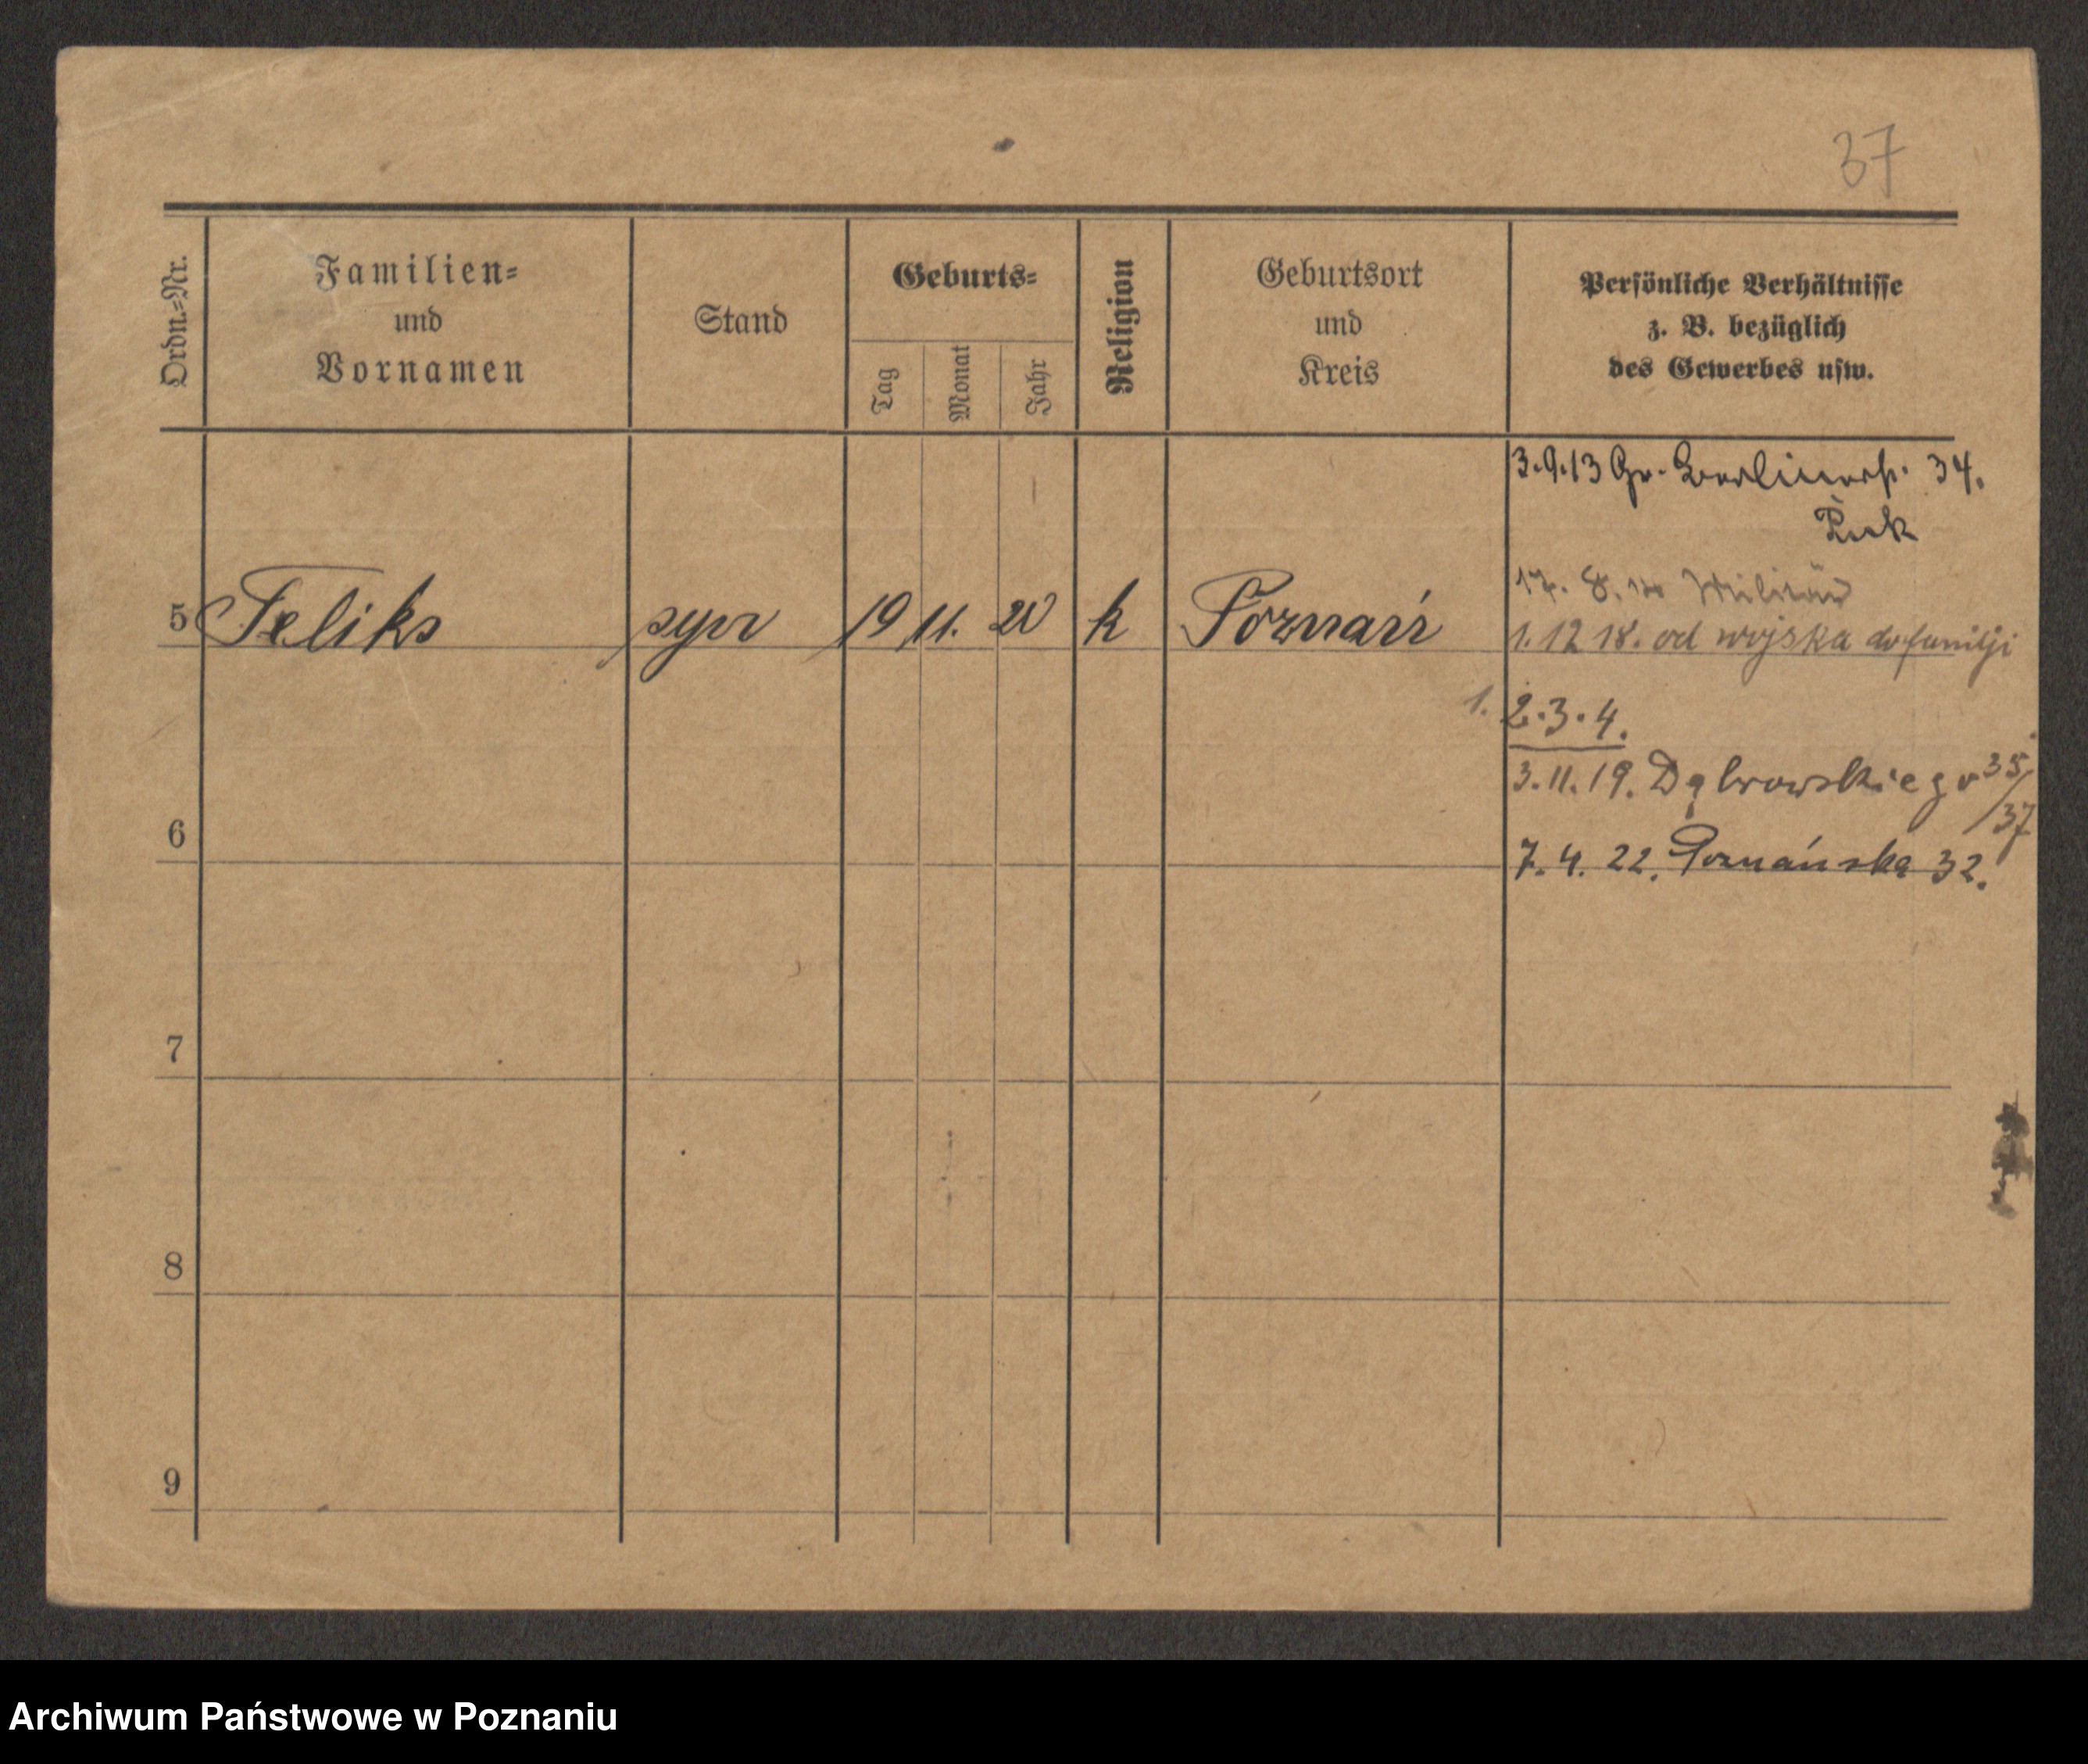 37
Ordn.=Nr.
Familien=
und
Vornamen
Stand
Geburts=
Tag
Monat
Jahr
Religion
Geburtsort
und
Kreis
Persönliche Verhältnisse
z. B. bezüglich
des Gewerbes usw.
3.9.13 Gr. Berlinerstr. 34.
17. 8. Militär
5 Feliks syn 19 11. 20 k Poznań
1. 12 18. od wojska do familji
1. 2. 3. 4.
3. 11. 19. Dąbrowskiego 35/37
6
7. 4. 22. Poznańska 32.
7
8
9
Archiwum Państwowe w Poznaniu